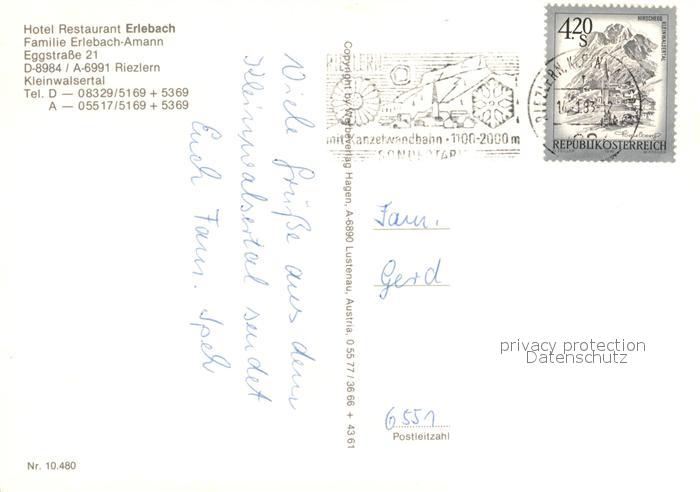 Hotel Restaurant Erlebach
Familie Erlebach-Amann
Eggstraße 21
D-8984 / A-6991 Riezlern
Kleinwalsertal
Tel. D — 08329/5169 + 5369
A — 05517/5169 + 5369
Viele Grüße aus dem
Kleinwalsertal sendet
Euch Fam. Speh
Copyright by Werbeverlag Hagen, A-6890 Lustenau, Austria, 0 55 77 / 36 66 + 43 61
RIEZLERN
mit Kanzelwandbahn · 1100-2000 m
4.20
S
HIRSCHEGG KLEINWALSERTAL
REPUBLIK ÖSTERREICH
Fam.
Gerd
privacy protection
Datenschutz
6551
Postleitzahl
Nr. 10.480